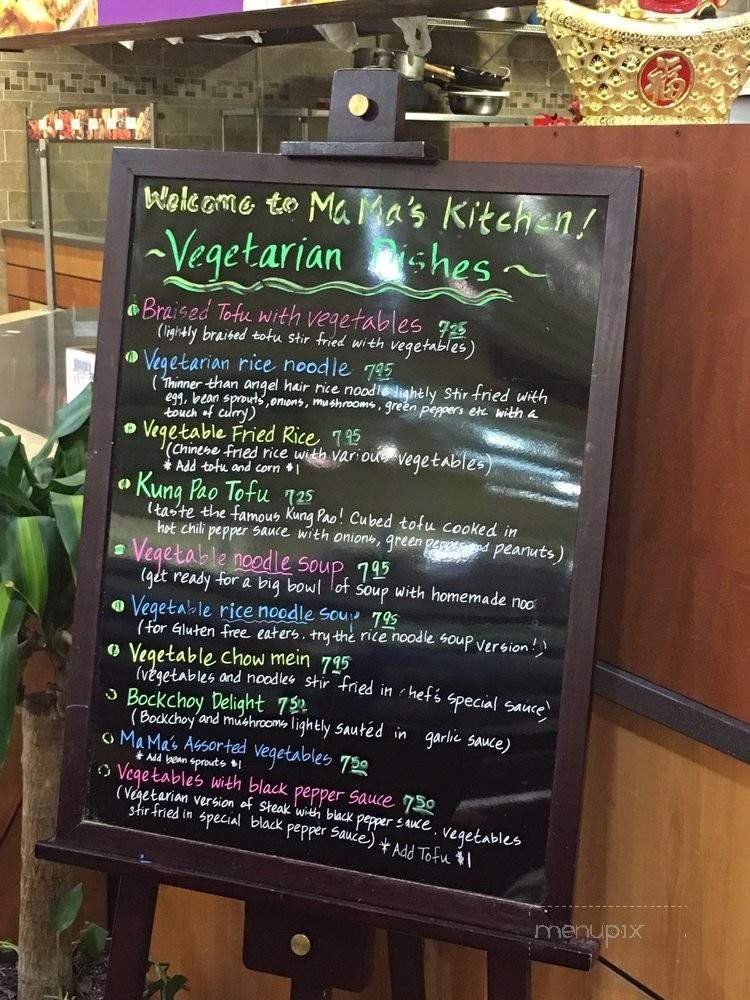 Welcome to Ma Ma's Kitchen!
~Vegetarian Dishes~
Braised Tofu with vegetables 7.25
(lightly braised tofu stir fried with vegetables)
Vegetarian rice noodle 7.95
(Thinner than angel hair rice noodle lightly stir fried with
egg, bean sprouts, onions, mushrooms, green peppers etc with a
touch of curry)
Vegetable Fried Rice 7.95
(Chinese fried rice with various vegetables)
* Add tofu and corn $1
Kung Pao Tofu 7.25
(taste the famous Kung Pao! Cubed tofu cooked in
hot chili pepper sauce with onions, green pepper and peanuts)
Vegetable noodle soup 7.95
(get ready for a big bowl of soup with homemade noo
Vegetable rice noodle soup 7.95
(for Gluten free eaters. try the rice noodle soup version!)
Vegetable chow mein 7.95
(vegetables and noodles stir fried in chef's special sauce)
Bockchoy Delight 7.50
(Bockchoy and mushrooms lightly sautéd in garlic sauce)
Ma Ma's Assorted vegetables 7.50
* Add bean sprouts $1
Vegetables with black pepper sauce 7.50
(Vegetarian version of steak with black pepper sauce. vegetables
stir fried in special black pepper sauce) * Add Tofu $1
福
menupix